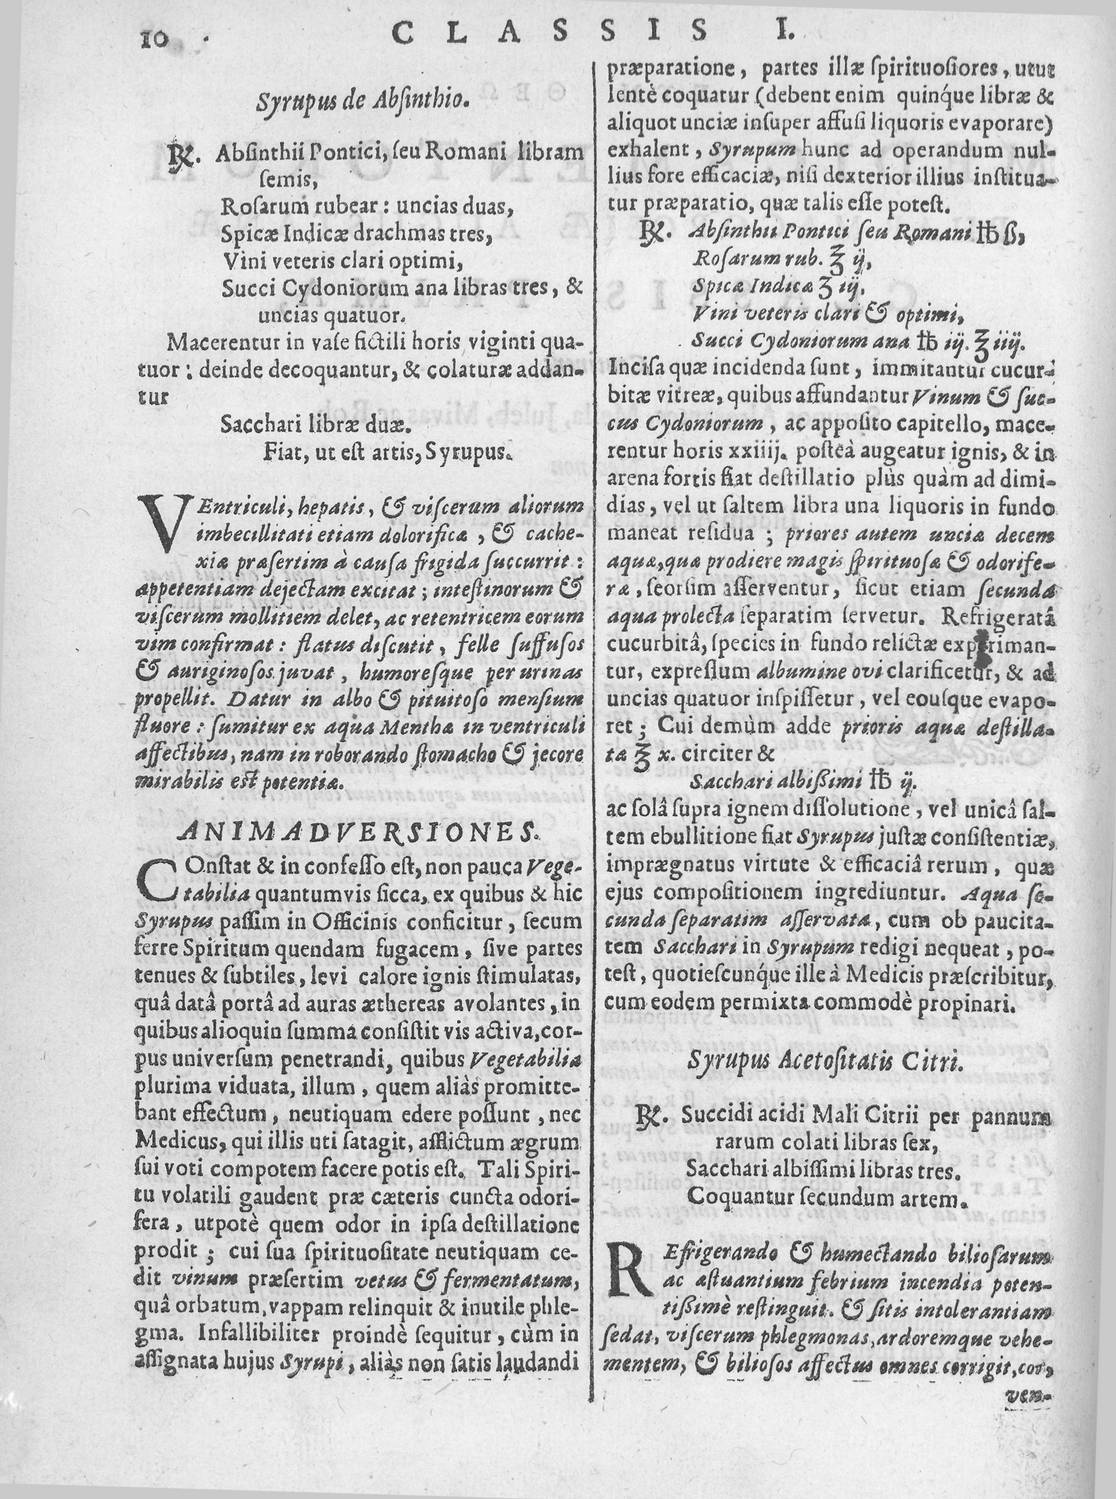 10
CLASSIS I.
Syrupus de Absinthio.
℞. Absinthii Pontici, seu Romani libram
semis,
Rosarum rubear: uncias duas,
Spicæ Indicæ drachmas tres,
Vini veteris clari optimi,
Succi Cydoniorum ana libras tres, &
uncias quatuor.
Macerentur in vase fictili horis viginti qua-
tuor: deinde decoquantur, & colaturæ addan-
tur
Sacchari libræ duæ.
Fiat, ut est artis, Syrupus.
VEntriculi, hepatis, & viscerum aliorum
imbecillitati etiam dolorificæ, & cache-
xiæ præsertim à causa frigida succurrit:
appetentiam dejectam excitat; intestinorum &
viscerum mollitiem delet, ac retentricem eorum
vim confirmat: flatus discutit, felle suffusos
& auriginosos juvat, humoresque per urinas
propellit. Datur in albo & pituitoso mensium
fluore: sumitur ex aqua Menthæ in ventriculi
affectibus, nam in roborando stomacho & jecore
mirabilis est potentiæ.
ANIMADVERSIONES.
COnstat & in confesso est, non pauca Vege-
tabilia quantumvis sicca, ex quibus & hic
Syrupus passim in Officinis conficitur, secum
ferre Spiritum quendam fugacem, sive partes
tenues & subtiles, levi calore ignis stimulatas,
quâ datâ portâ ad auras æthereas avolantes, in
quibus alioquin summa consistit vis activa, cor-
pus universum penetrandi, quibus Vegetabilia
plurima viduata, illum, quem aliàs promitte-
bant effectum, neutiquam edere possunt, nec
Medicus, qui illis uti satagit, afflictum ægrum
sui voti compotem facere potis est. Tali Spiri-
tu volatili gaudent præ cæteris cuncta odori-
fera, utpotè quem odor in ipsa destillatione
prodit; cui sua spirituositate neutiquam ce-
dit vinum præsertim vetus & fermentatum,
quâ orbatum, vappam relinquit & inutile phle-
gma. Infallibiliter proindè sequitur, cùm in
assignata hujus Syrupi, aliàs non satis laudandi
præparatione, partes illæ spirituosiores, utut
lentè coquatur (debent enim quinque libræ &
aliquot unciæ insuper affusi liquoris evaporare)
exhalent, Syrupum hunc ad operandum nul-
lius fore efficaciæ, nisi dexterior illius institua-
tur præparatio, quæ talis esse potest.
℞. Absinthii Pontici seu Romani ℔ ß,
Rosarum rub. ℥ ij,
Spicæ Indicæ ʒ iij,
Vini veteris clari & optimi,
Succi Cydoniorum ana ℔ iij. ℥ iiij.
Incisa quæ incidenda sunt, immitantur cucur-
bitæ vitreæ, quibus affundantur Vinum & suc-
cus Cydoniorum, ac apposito capitello, mace-
rentur horis xxiiij. posteà augeatur ignis, & in
arena fortis fiat destillatio plùs quàm ad dimi-
dias, vel ut saltem libra una liquoris in fundo
maneat residua; priores autem unciæ decem
aquæ, quæ prodiere magis spirituosæ & odorife-
ræ, seorsim asserventur, sicut etiam secunda
aqua prolecta separatim servetur. Refrigeratâ
cucurbitâ, species in fundo relictæ experiman-
tur, expressum albumine ovi clarificetur, & ad
uncias quatuor inspissetur, vel eousque evapo-
ret; Cui demùm adde prioris aquæ destilla-
tæ ℥ x. circiter &
Sacchari albissimi ℔ ij.
ac solâ supra ignem dissolutione, vel unicâ sal-
tem ebullitione fiat Syrupus justæ consistentiæ,
imprægnatus virtute & efficaciâ rerum, quæ
ejus compositionem ingrediuntur. Aqua se-
cunda separatim asservata, cum ob paucita-
tem Sacchari in Syrupum redigi nequeat, po-
test, quotiescunque ille à Medicis præscribitur,
cum eodem permixta commodè propinari.
Syrupus Acetositatis Citri.
℞. Succidi acidi Mali Citrii per pannum
rarum colati libras sex,
Sacchari albissimi libras tres.
Coquantur secundum artem.
REfrigerando & humectando biliosarum
ac æstuantium febrium incendia poten-
tissimè restinguit. & sitis intolerantiam
sedat, viscerum phlegmonas, ardoremque vehe-
mentem, & biliosos affectus omnes corrigit, cor,
ven-